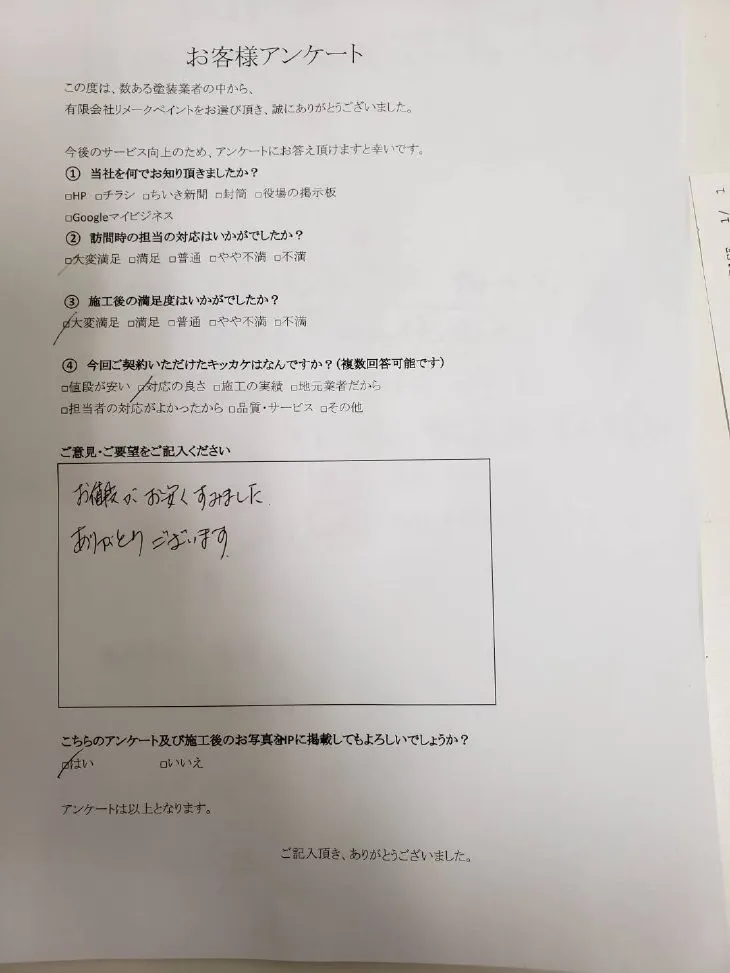 お客様アンケート
この度は、数ある塗装業者の中から、
有限会社リメークペイントをお選び頂き、誠にありがとうございました。
今後のサービス向上のため、アンケートにお答え頂けますと幸いです。
① 当社を何でお知り頂きましたか？
□HP □チラシ □ちいき新聞 □封筒 □役場の掲示板
□Googleマイビジネス
② 訪問時の担当の対応はいかがでしたか？
□大変満足 □満足 □普通 □やや不満 □不満
③ 施工後の満足度はいかがでしたか？
□大変満足 □満足 □普通 □やや不満 □不満
④ 今回ご契約いただけたキッカケはなんですか？（複数回答可能です）
□値段が安い □対応の良さ □施工の実績 □地元業者だから
□担当者の対応がよかったから □品質・サービス □その他
ご意見・ご要望をご記入ください
お値段が お安くすみました
ありがとう ございます
こちらのアンケート及び施工後のお写真をHPに掲載してもよろしいでしょうか？
□はい □いいえ
アンケートは以上となります。
ご記入頂き、ありがとうございました。